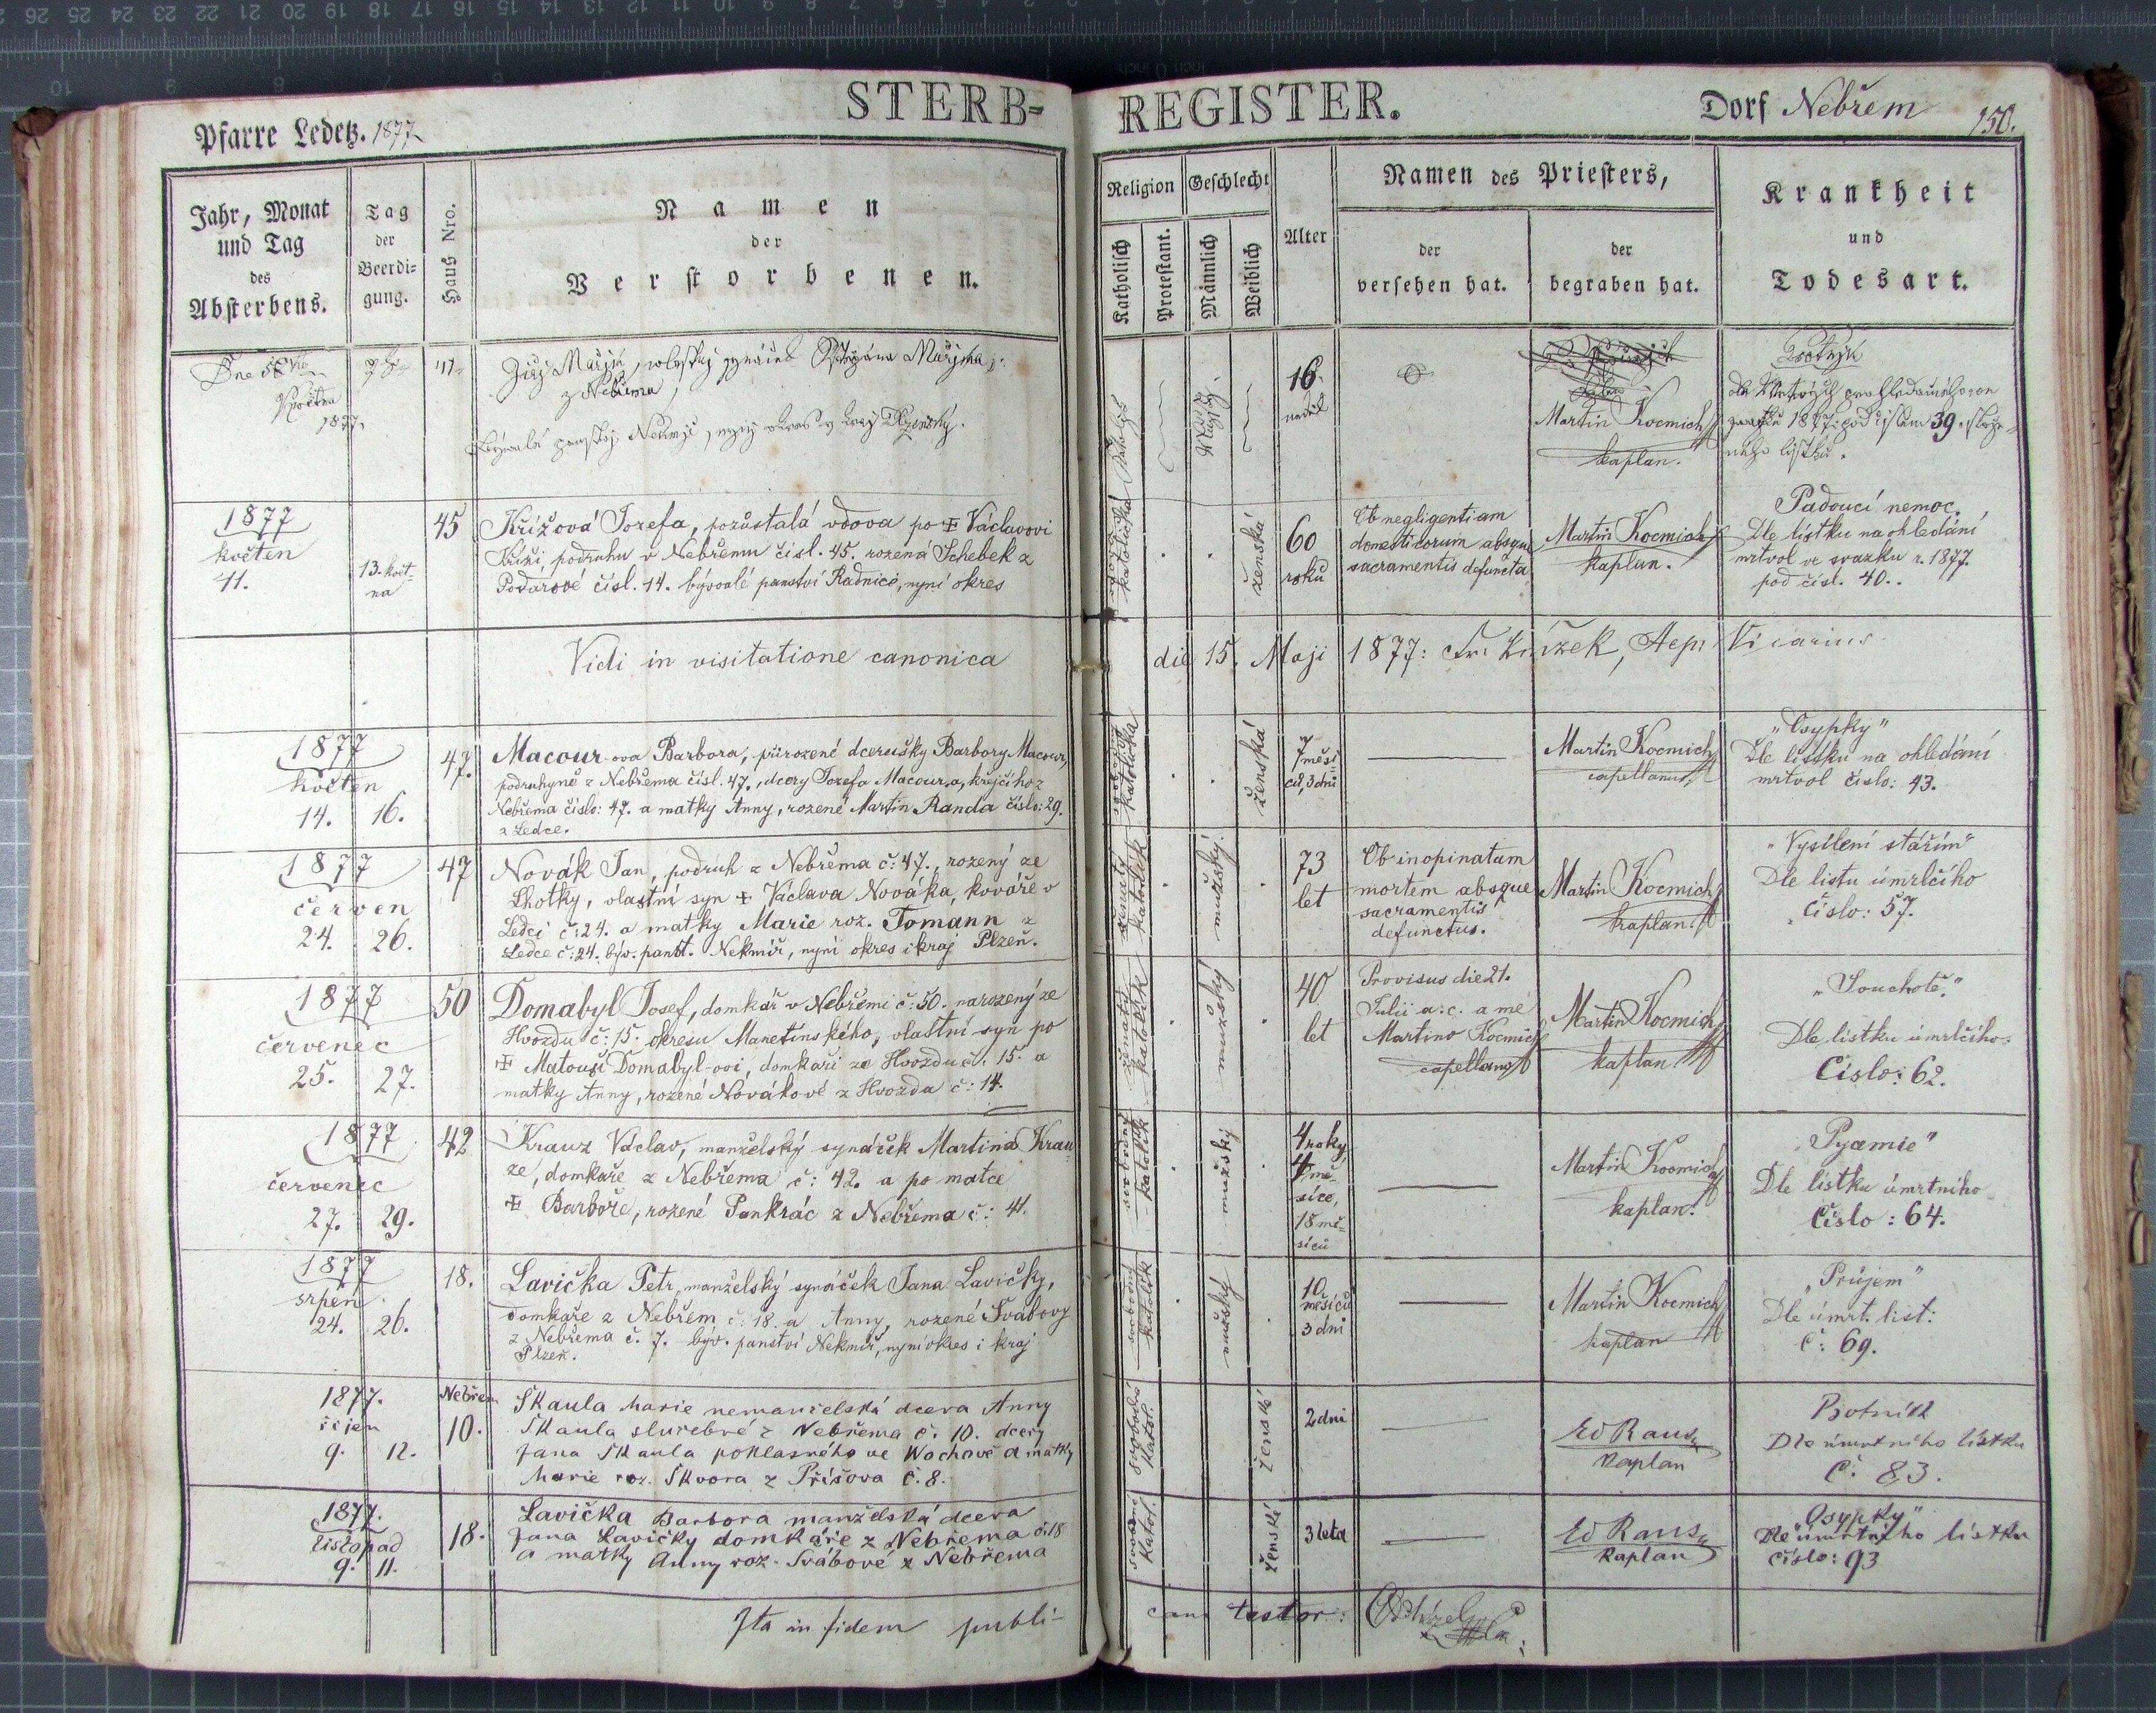 STERB-REGISTER.
Pfarre Ledetz. 1877
Dorf Nebřem
150.
Jahr, Monat und Tag des Absterbens.
Tag der Beerdigung.
Haus Nro.
Namen der Verstorbenen.
Religion
Katholisch
Protestant.
Geschlecht
Männlich
Weiblich
Alter
Namen des Priesters,
der versehen hat.
der begraben hat.
Krankheit und Todesart.
1877
z Nebřema,
16.
Martin Kocmich
kaplan.
1877
květen
11.
13. květ-
na
45
Křížová Josefa, pozůstalá vdova po + Václavovi
Kříži, podruhu v Nebřemu čisl. 45. rozená Schebek z
čisl. 14. bývalé panství Radnice, nyní okres
katolička
ženská
60
roků
Ob negligentiam
domesticorum absque
sacramentis defuncta
Martin Kocmich
kaplan.
Padoucí nemoc.
Dle lístku na ohledání
mrtvol ve svazku r. 1877.
pod čísl. 40..
Vidi in visitatione canonica die 15. Maji 1877: Vicarius
1877
květen
14. 16.
47.
Macour-ova Barbora, přirozené dcerušky Barbory Macour,
podruhyně z Nebřema čisl. 47., dcery Josefa Macoura, krejčího z
Nebřema číslo: 47. a matky Anny, rozené Martin Randa číslo: 29.
z Ledce.
katolička
ženská
7 měsí
ců, 3 dni
Martin Kocmich
capellanus.
"Osypky"
Dle lístku na ohledání
mrtvol číslo: 43.
1877
červen
24. 26.
47
Novák Jan, podruh z Nebřema č: 47., rozený ze
Lhotky, vlastní syn + Václava Nováka, kováře v
Ledci č: 24. a matky Marie roz. Tomann z
Ledce č: 24. býv. panst. Nekmíř, nyní okres i kraj Plzeň.
katolík
mužský.
73
let
Ob inopinatam
mortem absque
sacramentis
defunctus.
Martin Kocmich
kaplan
"Vysílení stářím"
Dle listu úmrlčího
číslo: 57.
1877
červenec
25. 27.
50
Domabyl Josef, domkář v Nebřemi č: 50. narozený ze
Hvozdu č: 15. okresu Manetinského, vlastní syn po
+ Matouši Domabyl-ovi, domkáři ze Hvozdu č. 15. a
matky Anny, rozené Novákové z Hvozda č: 14.
ženatý
katolík
mužský
40
let
Provisus die 21.
Julii a: c. a me
Martino Kocmich
capellano
Martin Kocmich
kaplan
"Souchotě."
Dle lístku úmrlčího.
Číslo: 62.
1877
červenec
27. 29.
42
Krauz Václav, manželský synáček Martina Krau-
ze, domkáře z Nebřema č: 42. a po matce
+ Barboře, rozené Pankrác z Nebřema č: 41.
svobodný
katolík
mužský
4 roky
4 mě-
síce,
18 mě-
síců
Martin Kocmich
kaplan.
"Pyæmie"
Dle lístku úmrtního
Číslo: 64.
1877
srpen
24. 26.
18.
Lavička Petr, manželský synáček Jana Lavičky,
domkáře z Nebřem č: 18. a Anny, rozené Švábovy
z Nebřema č. 7. býv. panství Nekmíř, nyní okres i kraj
Plzeň.
svobodný
katolík
mužský
10
měsíců
3 dni
Martin Kocmich
kaplan
"Průjem"
Dle úmrt. list:
č: 69.
1877.
říjen
9. 12.
Nebřem
10.
Skaula Marie nemanželská dcera Anny
Skaula služebné z Nebřema č. 10. dcery
Jana Skaula poklasného ve Wochově a matky
Marie roz. Skvora z Příšova č. 8.
svobodná
katol.
ženské
2 dni
Ed Raus
kaplan
Psotník
Dle úmrtního lístku
č. 83.
1877.
listopad
9. 11.
18.
Lavička Barbora manželská dcera
Jana Lavičky domkáře z Nebřema č. 18
a matky Anny roz. Švábové z Nebřema
katol.
ženské
3 leta
Ed Raus
kaplan
"Osypky"
Dle úmrtního lístku
číslo: 93
Ita in fidem publi-
cam testor: